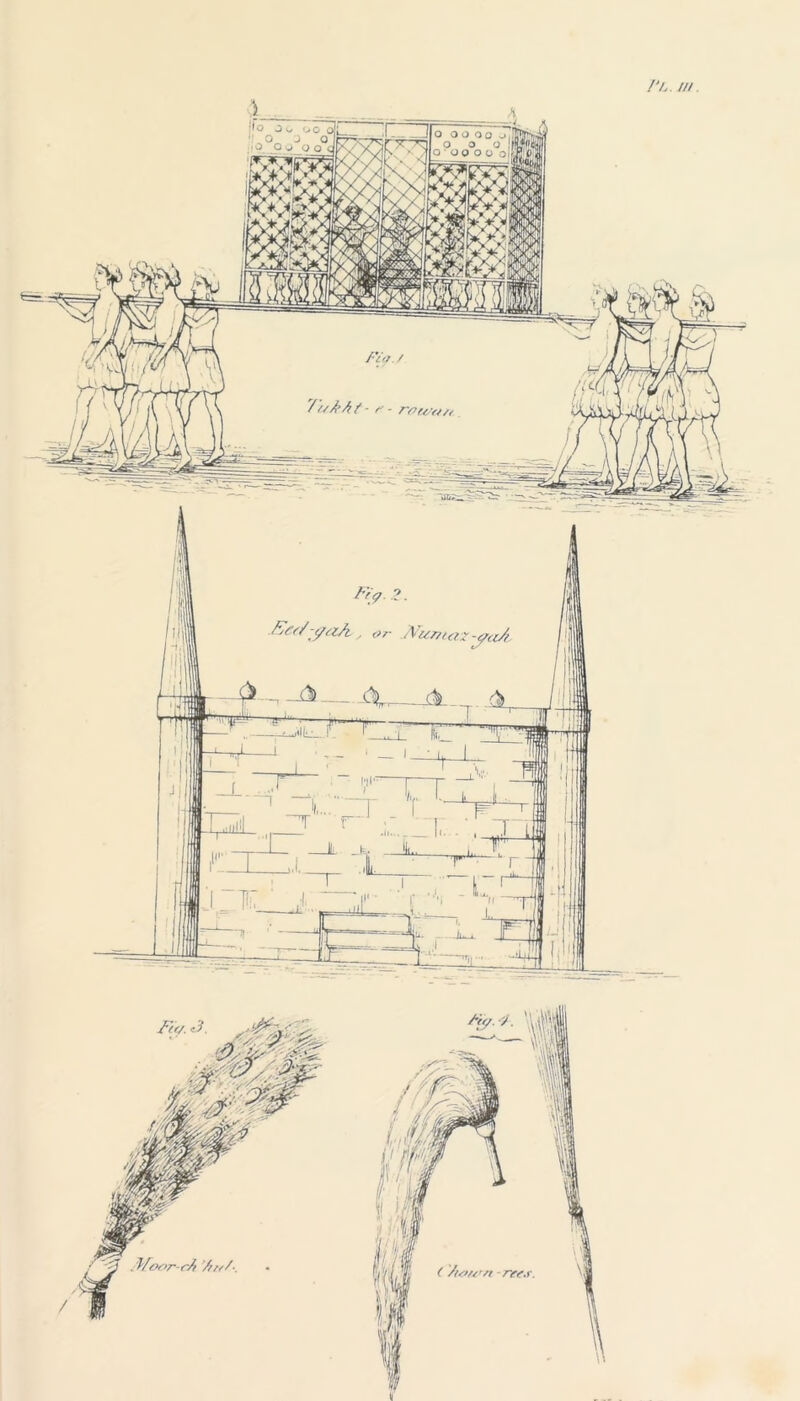 PL. III.
Fig. 1
Tukht-e-rowan
Fig. 2.
Eed-gah, or Numaz-gah
Fig. 3.
Fig. 4.
Moor-ch'hul.
Chown-rees.